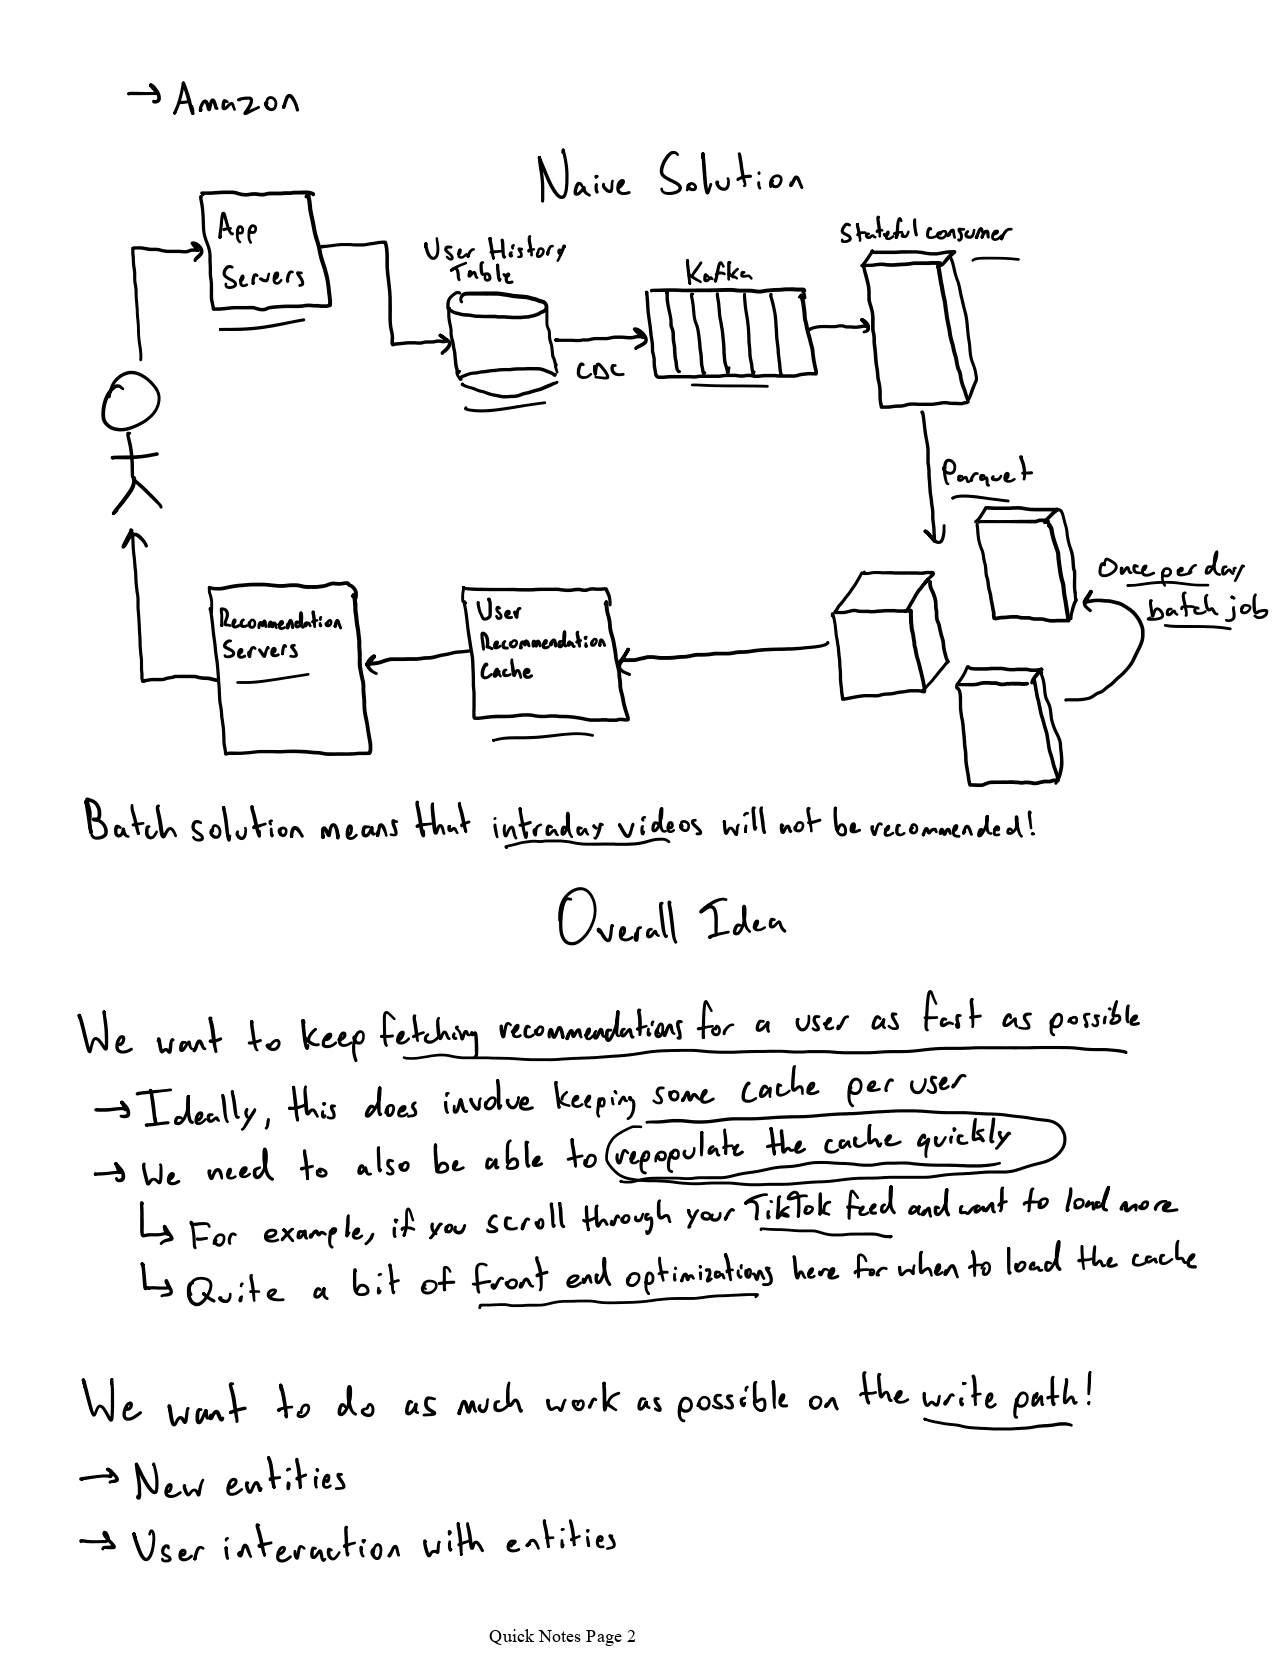 → Amazon
Naive Solution
App
Servers
User History
Table
CDC
Kafka
Stateful consumer
Parquet
Once per day
batch job
User
Recommendation
Cache
Recommendation
Servers
Batch solution means that intraday videos will not be recommended!
Overall Idea
We want to keep fetching recommendations for a user as fast as possible
→ Ideally, this does involve keeping some cache per user
→ We need to also be able to repopulate the cache quickly
↳ For example, if you scroll through your TikTok feed and want to load more
↳ Quite a bit of front end optimizations here for when to load the cache
We want to do as much work as possible on the write path!
→ New entities
→ User interaction with entities
Quick Notes Page 2